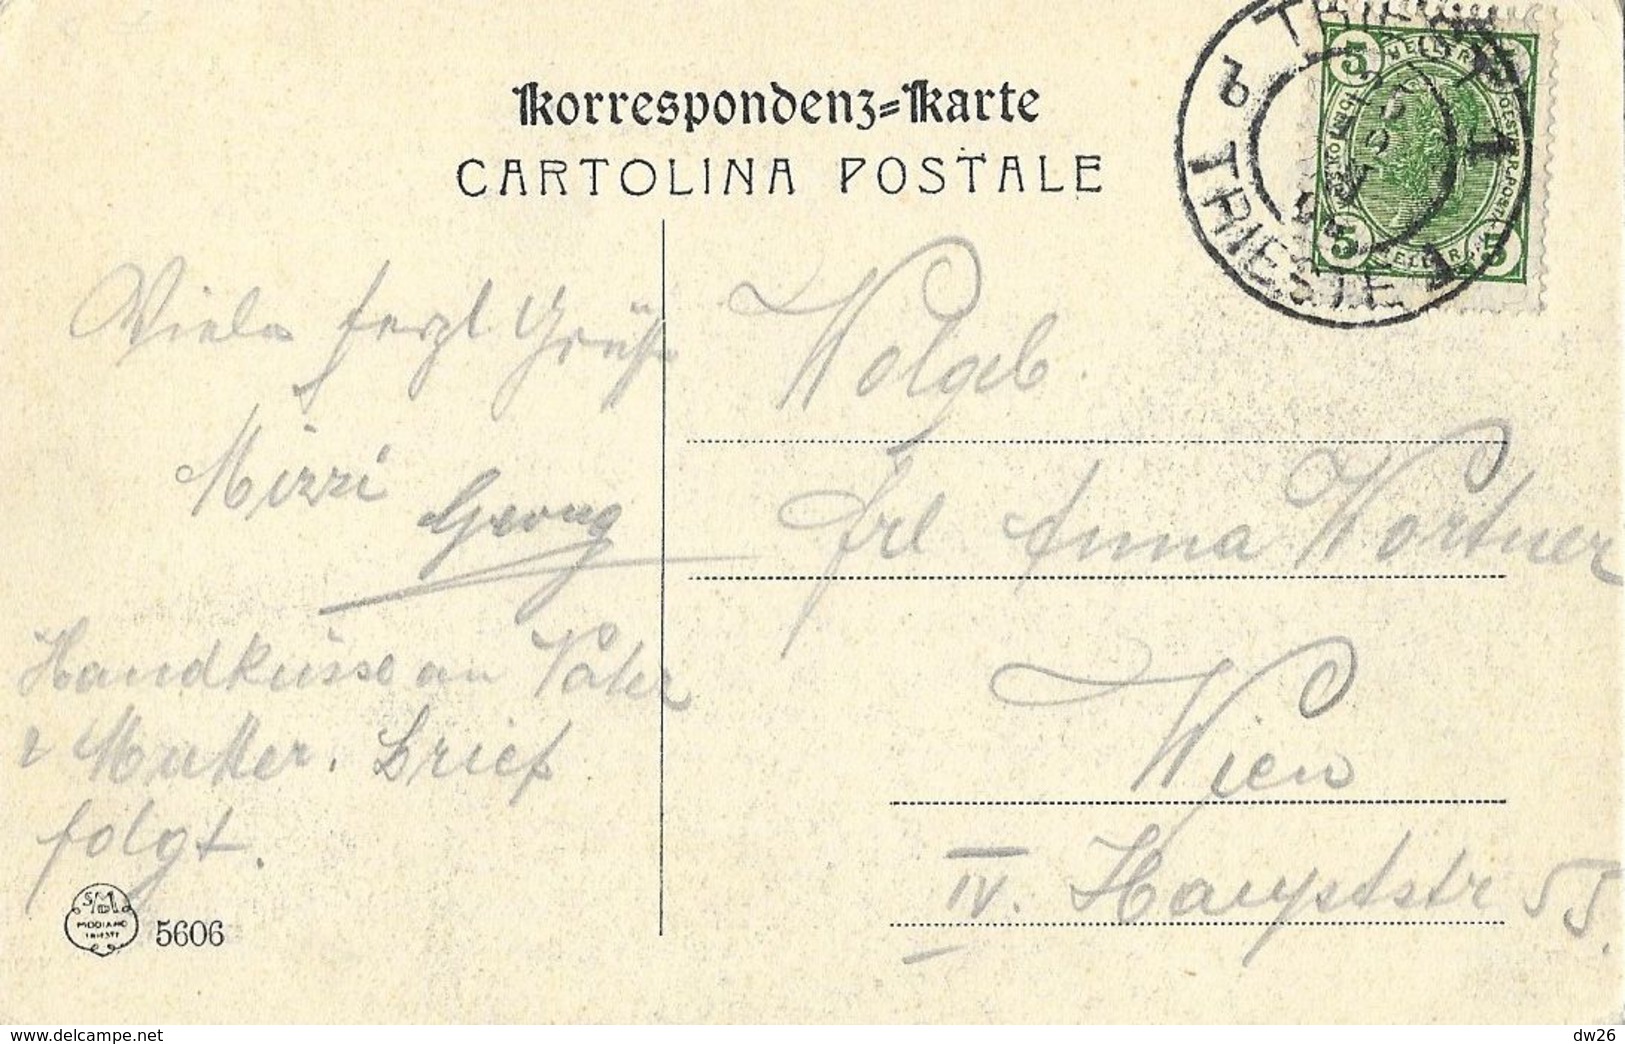 Korrespondenz=Karte
CARTOLINA POSTALE
TRIEST 1
b TRIESTE 1
5 HELLER 5
5 HELLER 5
Viele herzl Grüße
Mizzi
Georg
Handküsse an Vater
& Mutter. Brief
folgt.
Wolgeb.
Frl Anna Wortner
Wien
IV. Hauptstr 55.
SDM
MODIANO
TRIEST
5606
https://www.delcampe.net
dw26